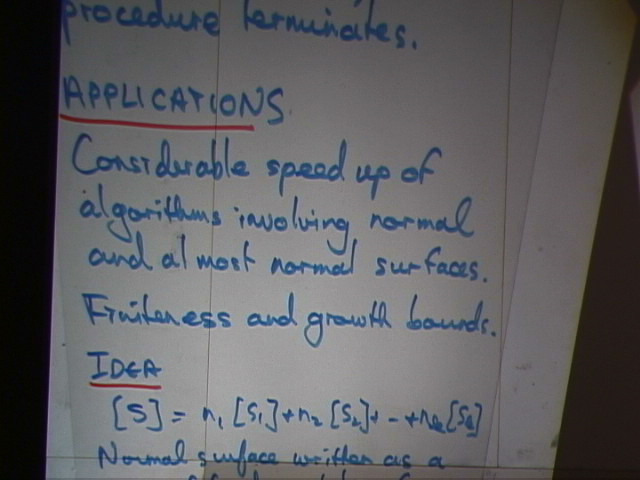 procedure terminates.
APPLICATIONS
Considerable speed up of
algorithms involving normal
and almost normal surfaces.
Finiteness and growth bounds.
IDEA
[S] = n₁ [S₁] + n₂ [S₂] + - + nₖ [Sₖ]
Normal surface written as a